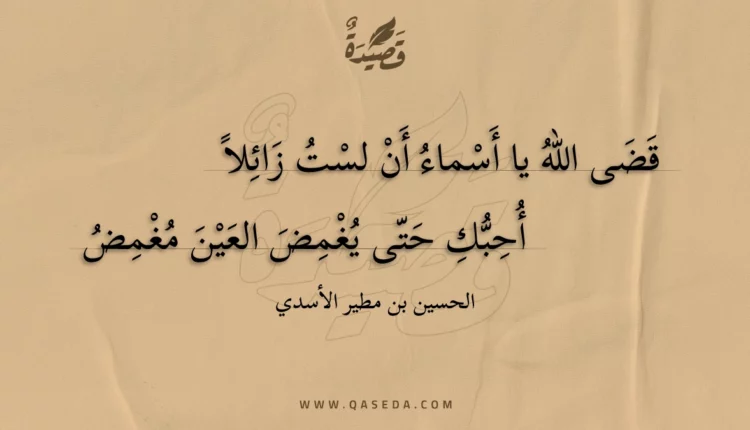 قَصِيْدَةٌ
قَضَى اللهُ يا أَسْماءُ أَنْ لسْتُ زَائِلاً
أُحِبُّكِ حَتّى يُغْمِضَ العَيْنَ مُغْمِضُ
الحسين بن مطير الأسدي
WWW.QASEDA.COM